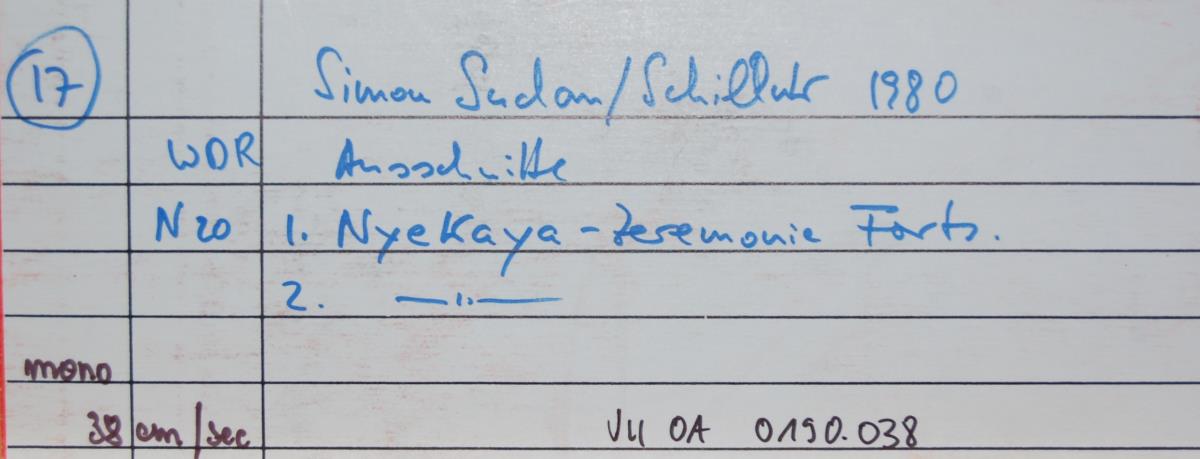 17 Simon Sudan/Schilluk 1980
WDR Ausschnitte
N20 1. Nyekaya-Zeremonie Forts.
2. —"—
mono
38 cm/sec VII OA 0190.038